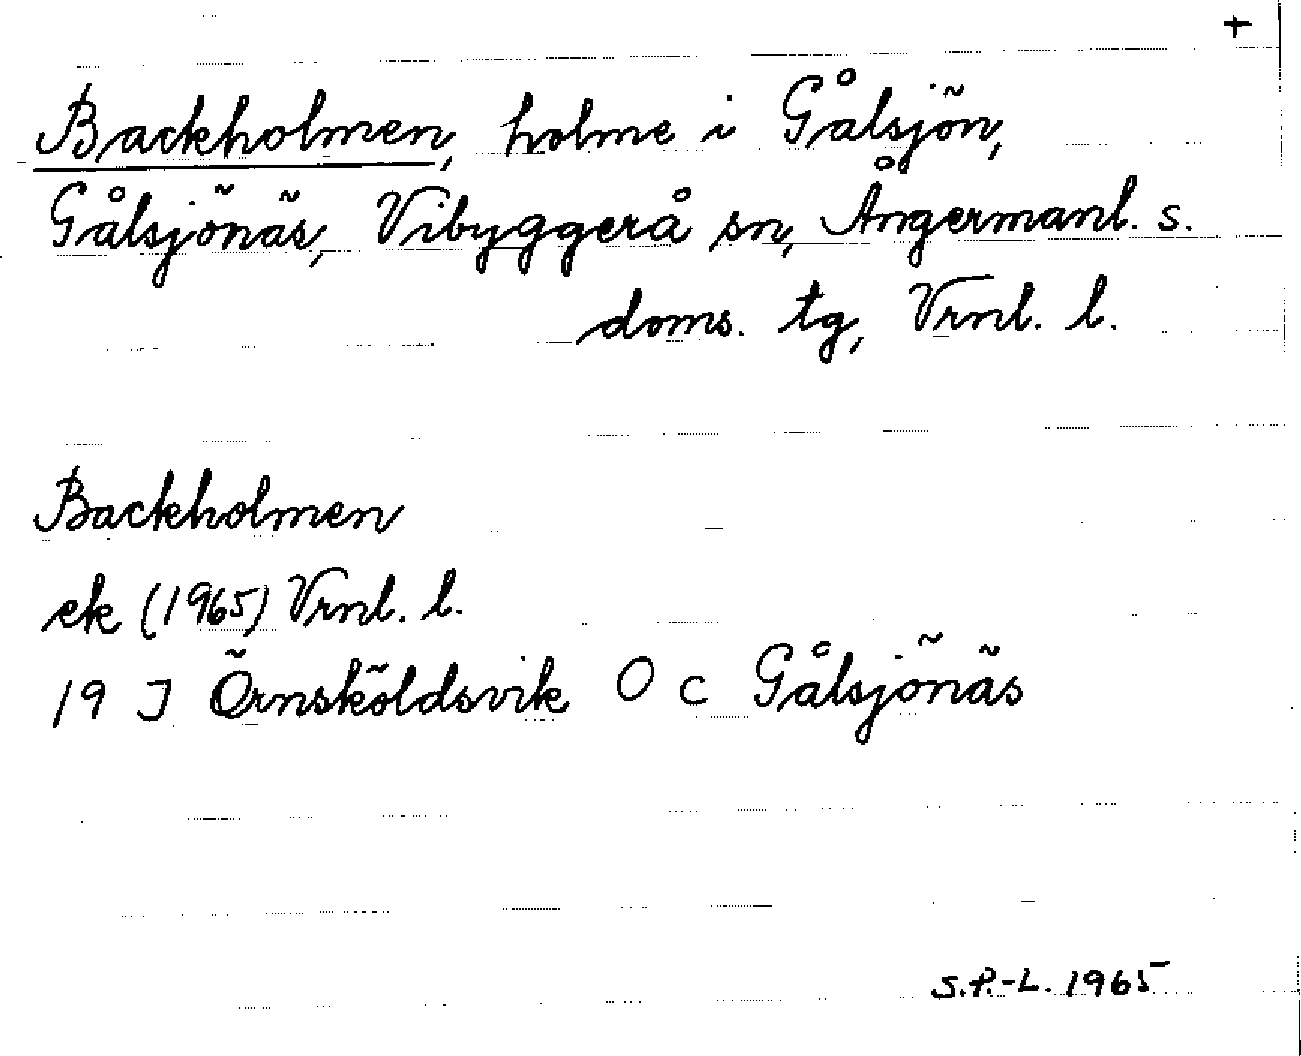 +
Backholmen, holme i Gålsjön,
Gålsjönäs, Vibyggerå sn, Ångermanl. s.
doms. tg, Vrnl. l.
Backholmen
ek (1965) Vrnl. l.
19 J Örnsköldsvik O c Gålsjönäs
S.P.-L. 1965